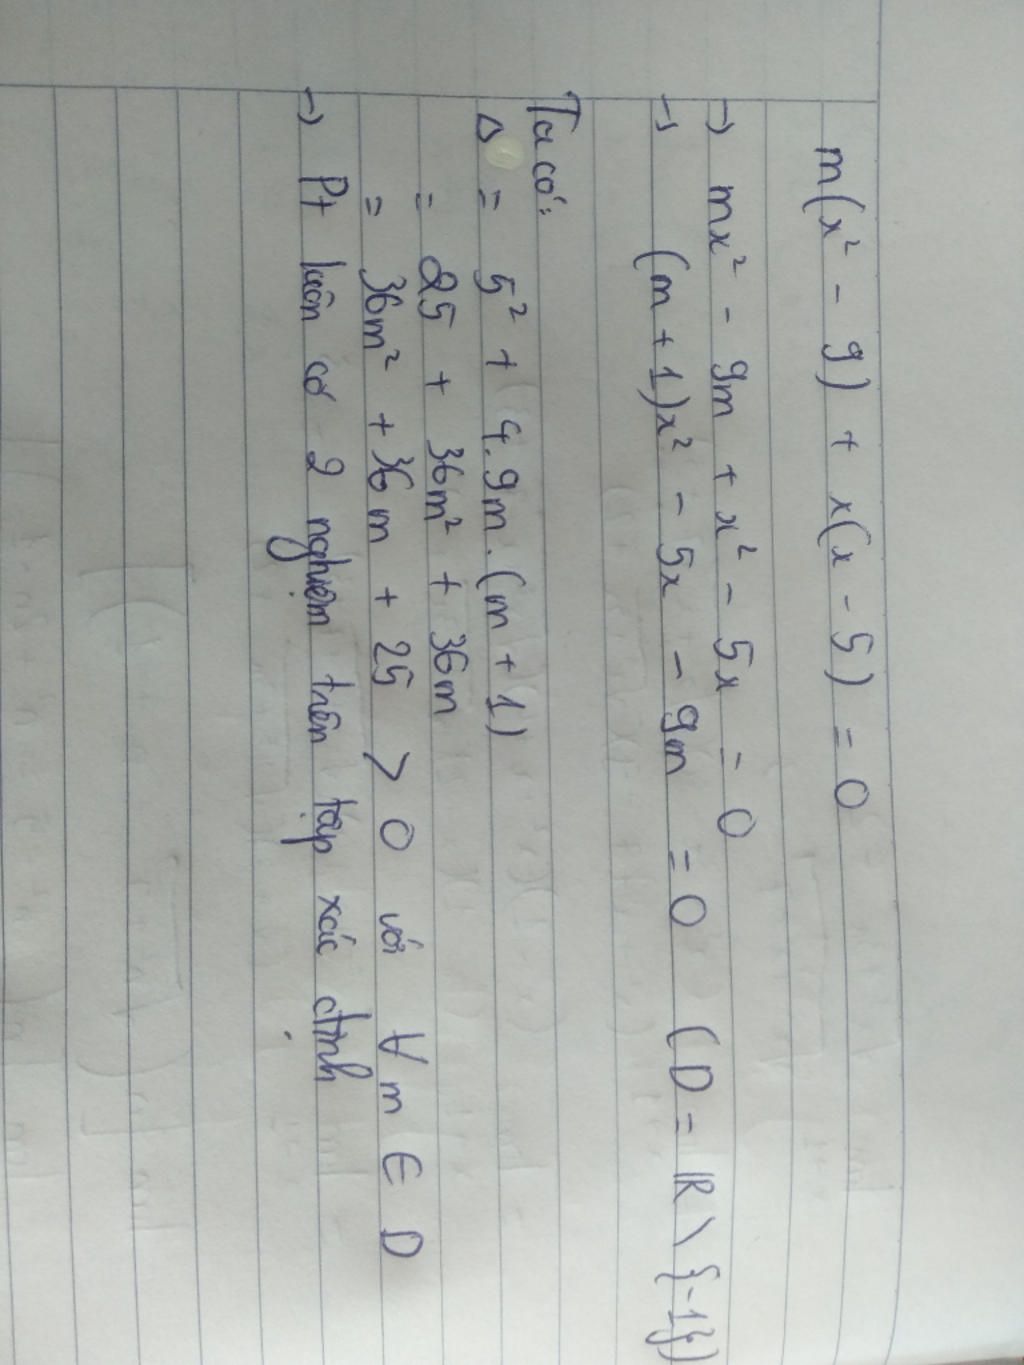 m(x² - 9) + x(x - 5) = 0
→ mx² - 9m + x² - 5x = 0
→ (m + 1)x² - 5x - 9m = 0 (D = ℝ \ {-1})
Ta có:
Δ = 5² + 4.9m.(m + 1)
= 25 + 36m² + 36m
= 36m² + 36m + 25 > 0 với ∀ m ∈ D
→ Pt luôn có 2 nghiệm trên tập xác định